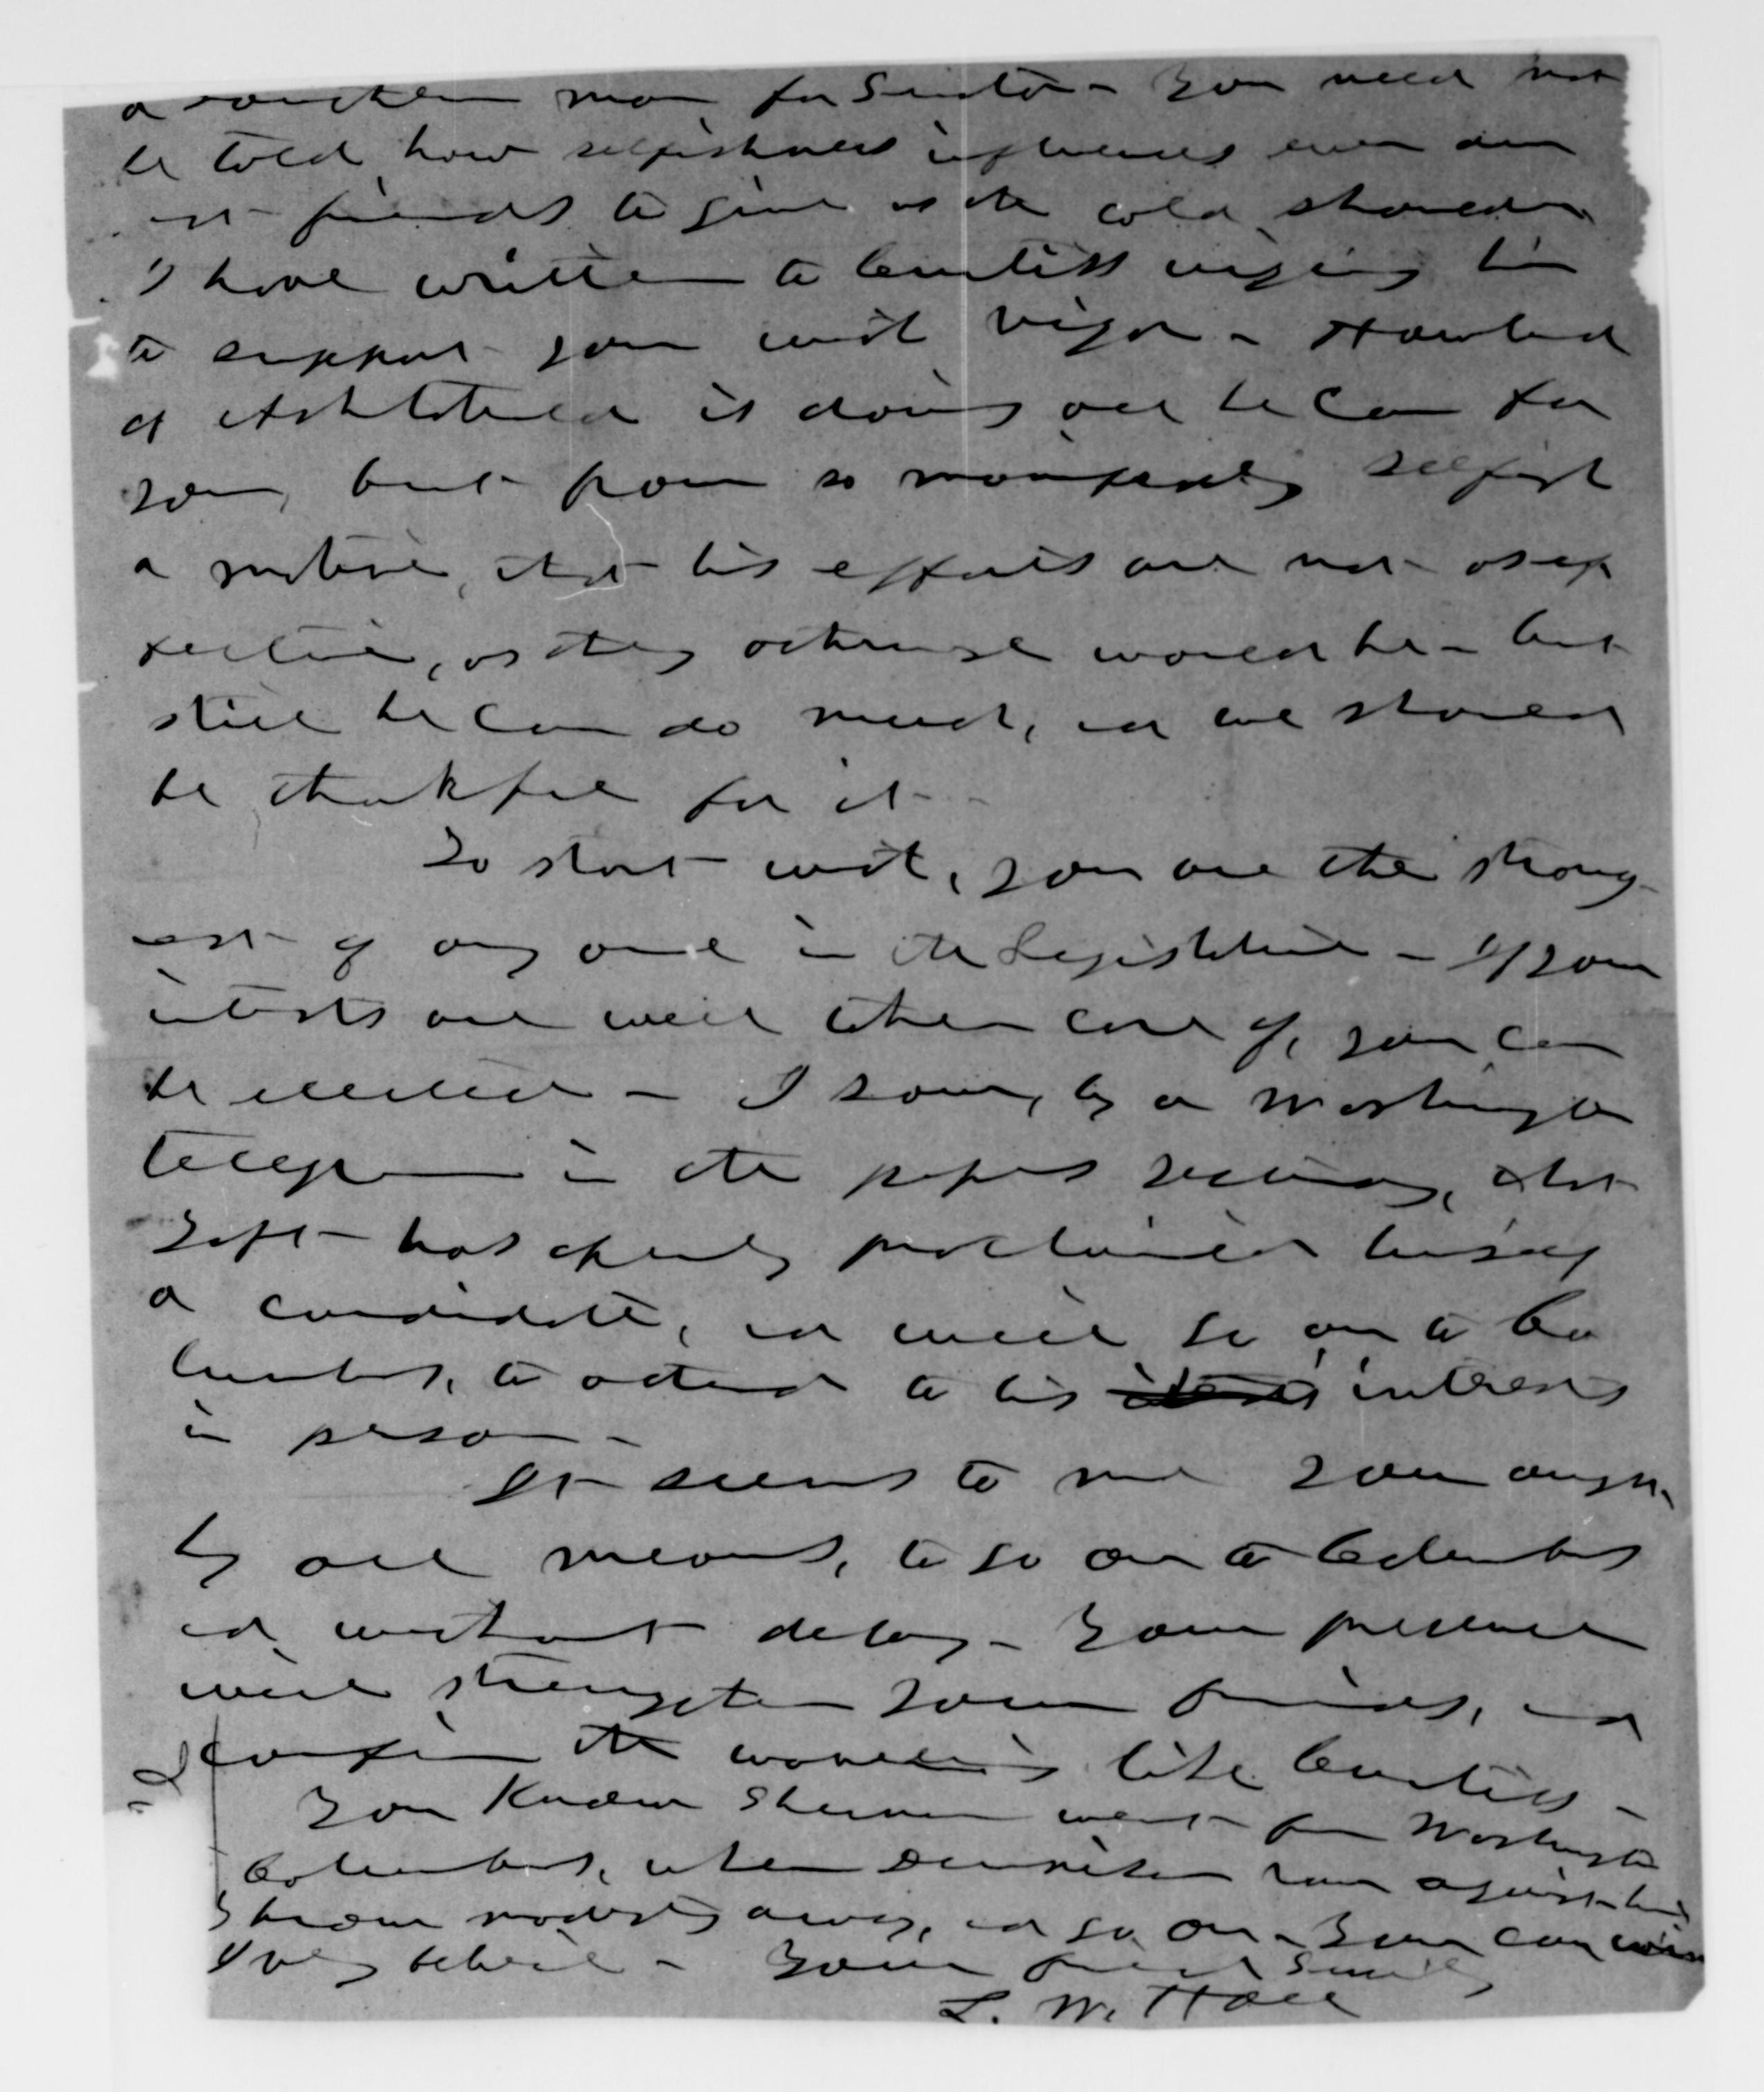 a southern man for Senator - You need not
be told how selfishness influences even our
est friends to give us the cold shoulder
I have written to Curtiss urging him
to support you with vigor - Howland
of Ashtabula is doing all he can for
you, but from so manifestly selfish
a motive, that his efforts are not as ef
fective, as they otherwise would be - but
still he can do much, and we should
be thankful for it -
To start with, you are the strong-
est of any one in the Legislature - If your
interests are well taken care of, you can
be elected - I saw, by a Washington
telegram in the papers yesterday, that
Taft has openly proclaimed himself
a candidate, and will go on to Co
lumbus, to attend to his interests
in person -
It seems to me you ought
by all means, to go on to Columbus
and without delay - Your presence
will strengthen your friends, and
confirm the wavering like Curtiss -
You know Sherman went from Washington
Columbus, when Dennison ran against him
Throw modesty away, and go on - You can win
I verily believe - Your friend Sincerely
L. W. Hall